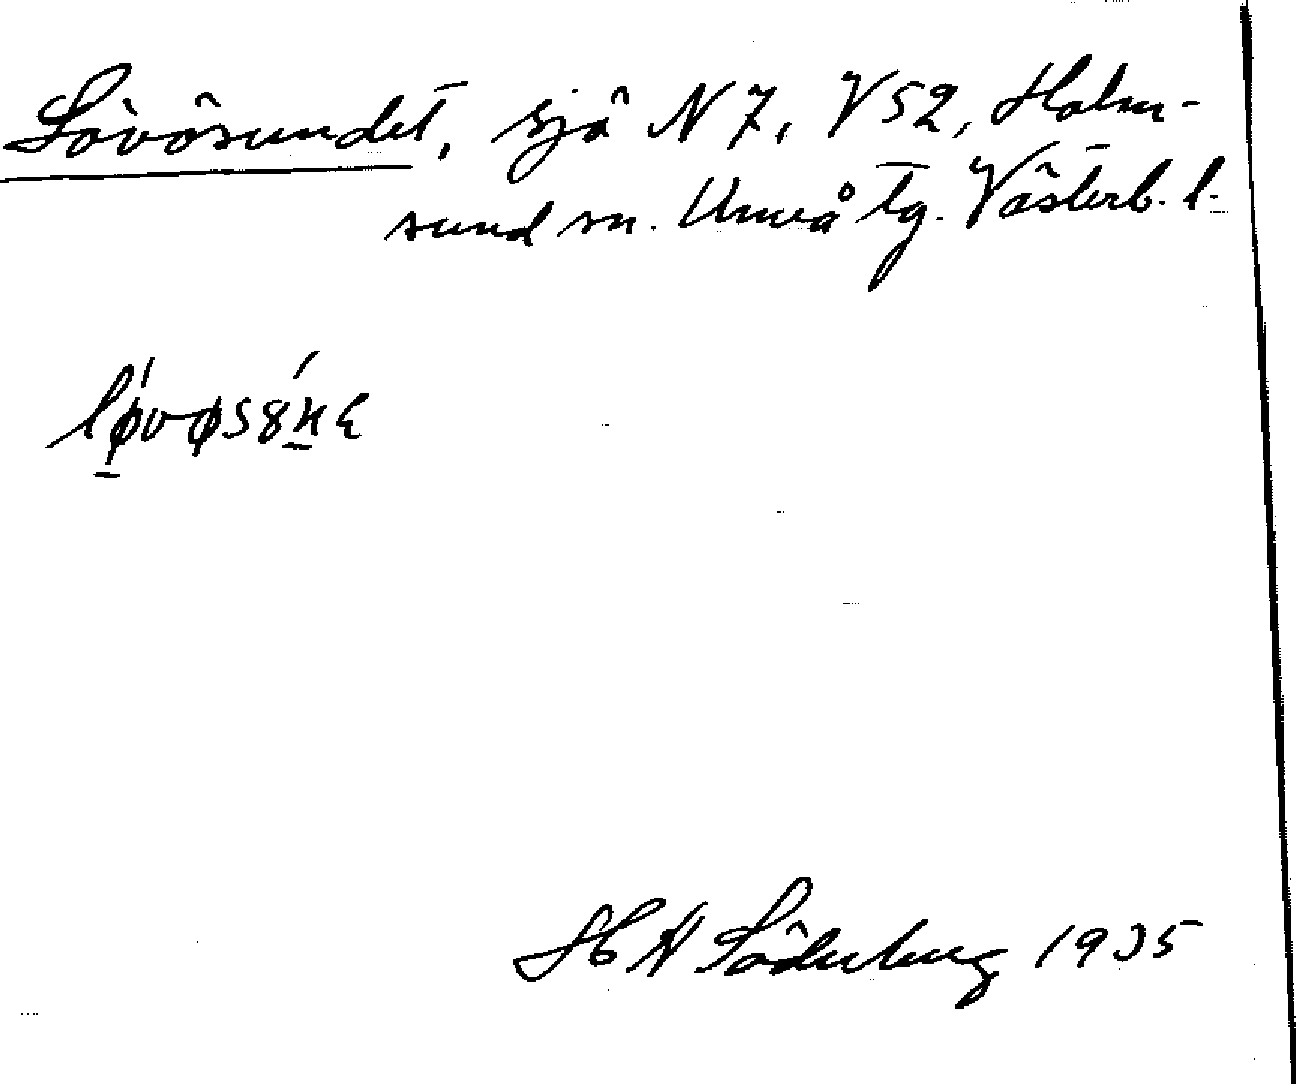 Lövösundet, sjö N 7, V 52, Holm-
sund sn. Umeå tg. Västerb. l.
lǿ̱vøsȣṉ́ε
H A Söderberg 1935